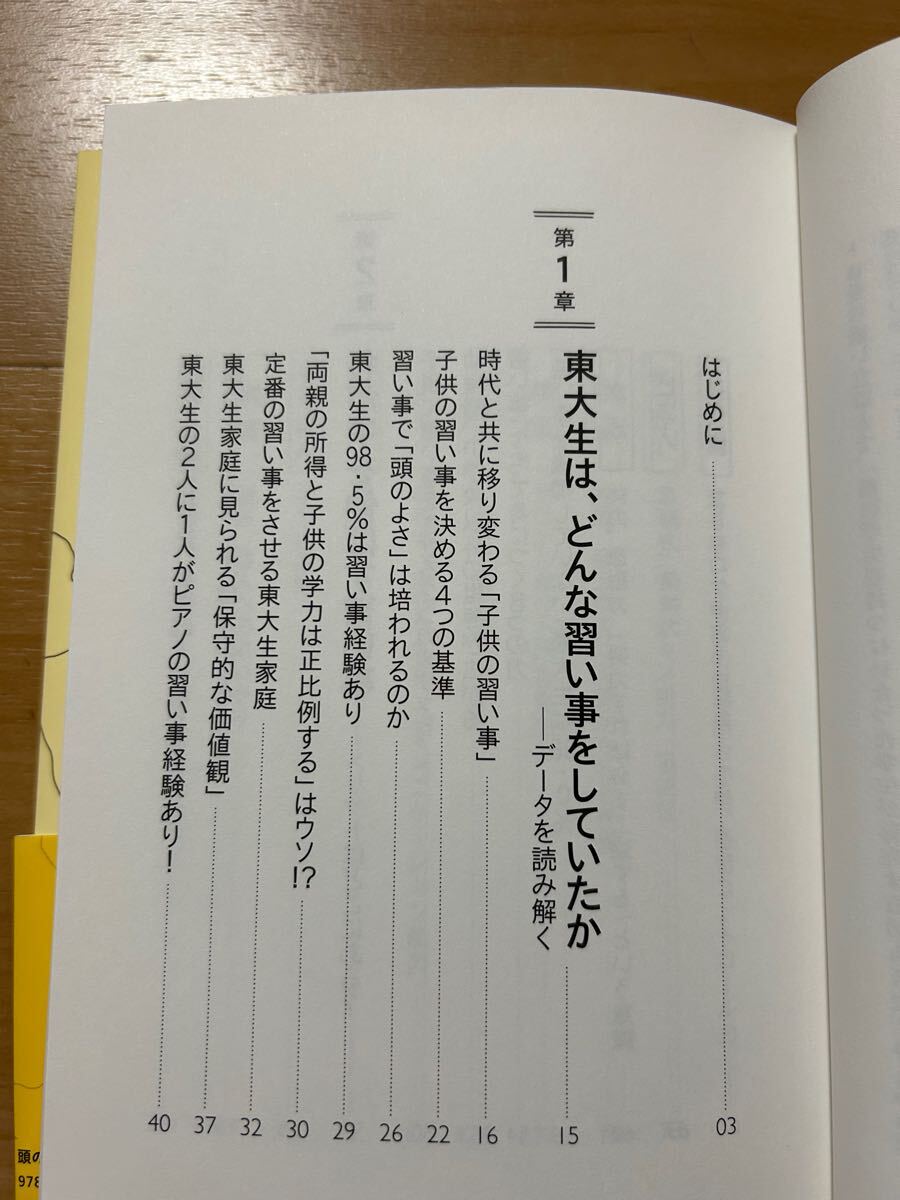 はじめに 03
第1章
東大生は、どんな習い事をしていたか
―データを読み解く 15
時代と共に移り変わる「子供の習い事」 16
子供の習い事を決める4つの基準 22
習い事で「頭のよさ」は培われるのか 26
東大生の98・5%は習い事経験あり 29
「両親の所得と子供の学力は正比例する」はウソ!? 30
定番の習い事をさせる東大生家庭 32
東大生家庭に見られる「保守的な価値観」 37
東大生の2人に1人がピアノの習い事経験あり! 40
頭の
978